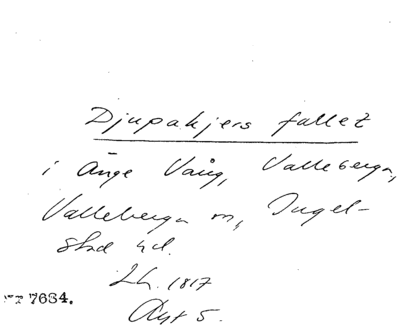 Djupakjers fallet
i Änge Vång, Valleberga,
Valleberga sn, Ingel-
stad hd.
Lh. 1817
Akt 5.
7684.